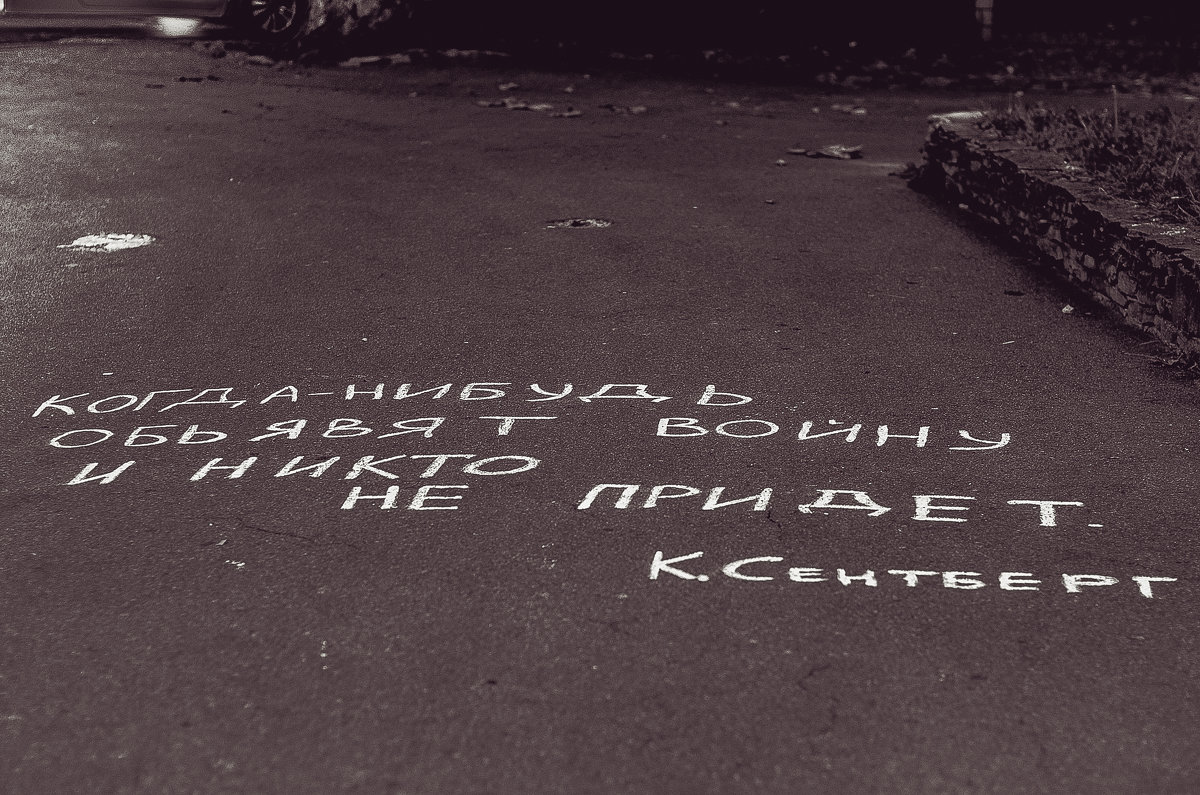 КОГДА-НИБУДЬ
ОБЬЯВЯТ ВОЙНУ
И НИКТО
НЕ ПРИДЕТ.
К. СЕНТБЕРГ